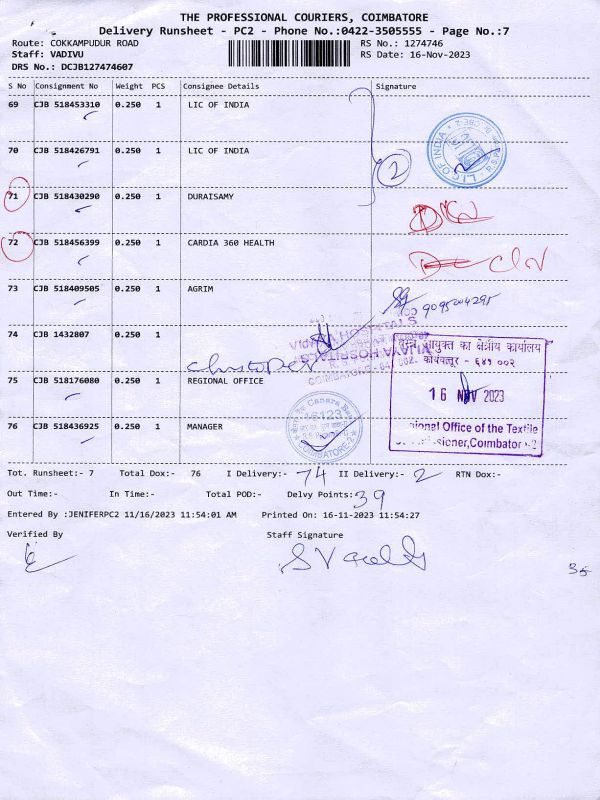 THE PROFESSIONAL COURIERS, COIMBATORE
Delivery Runsheet - PC2 - Phone No.:0422-3505555 - Page No.:7
Route: COKKAMPUDUR ROAD RS No.: 1274746
Staff: VADIVU RS Date: 16-Nov-2023
DRS No.: DCJB127474607
S No Consignment No Weight PCS Consignee Details Signature
69 CJB 518453310 0.250 1 LIC OF INDIA
LIC OF INDIA
70 CJB 518426791 0.250 1 LIC OF INDIA
2
71 CJB 518430290 0.250 1 DURAISAMY
72 CJB 518456399 0.250 1 CARDIA 360 HEALTH
73 CJB 518409505 0.250 1 AGRIM
9095204295
VIJAYA HOSPITALS
74 1432807 0.250 1
आयुक्त का क्षेत्रीय कार्यालय
कोयंबत्तूर - ६४१ ००२
75 CJB 518176080 0.250 1 REGIONAL OFFICE
16 NOV 2023
Canara Bank
16123
COIMBATORE-2
76 CJB 518436925 0.250 1 MANAGER
ional Office of the Textile
ssioner,Coimbatore-2
Tot. Runsheet:- 7 Total Dox:- 76 I Delivery:- 74 II Delivery:- 2 RTN Dox:-
Out Time:- In Time:- Total POD:- Delvy Points: 39
Entered By :JENIFERPC2 11/16/2023 11:54:01 AM Printed On: 16-11-2023 11:54:27
Verified By Staff Signature
35